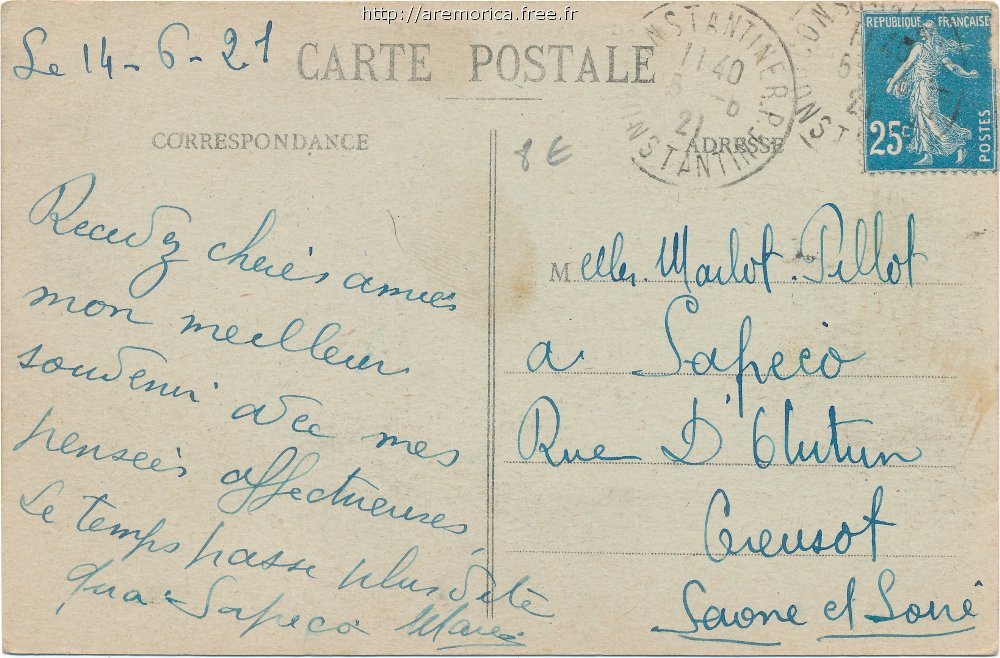 http://aremorica.free.fr
Le 14-6-21
CARTE POSTALE
CONSTANTINE R.P.
11 40
5 -6
21
CONSTANTINE
REPUBLIQUE FRANÇAISE
25c
POSTES
CORRESPONDANCE
ADRESSE
8 €
Recevez cheres amies
mon meilleur
souvenir avec mes
pensées affectueuses,
Le temps passe plus vite
qu'a Sapeco Marie
Melles. Marlot. Pillot
a Sapeco
Rue D'Autun
Creusot
Saone et Loire